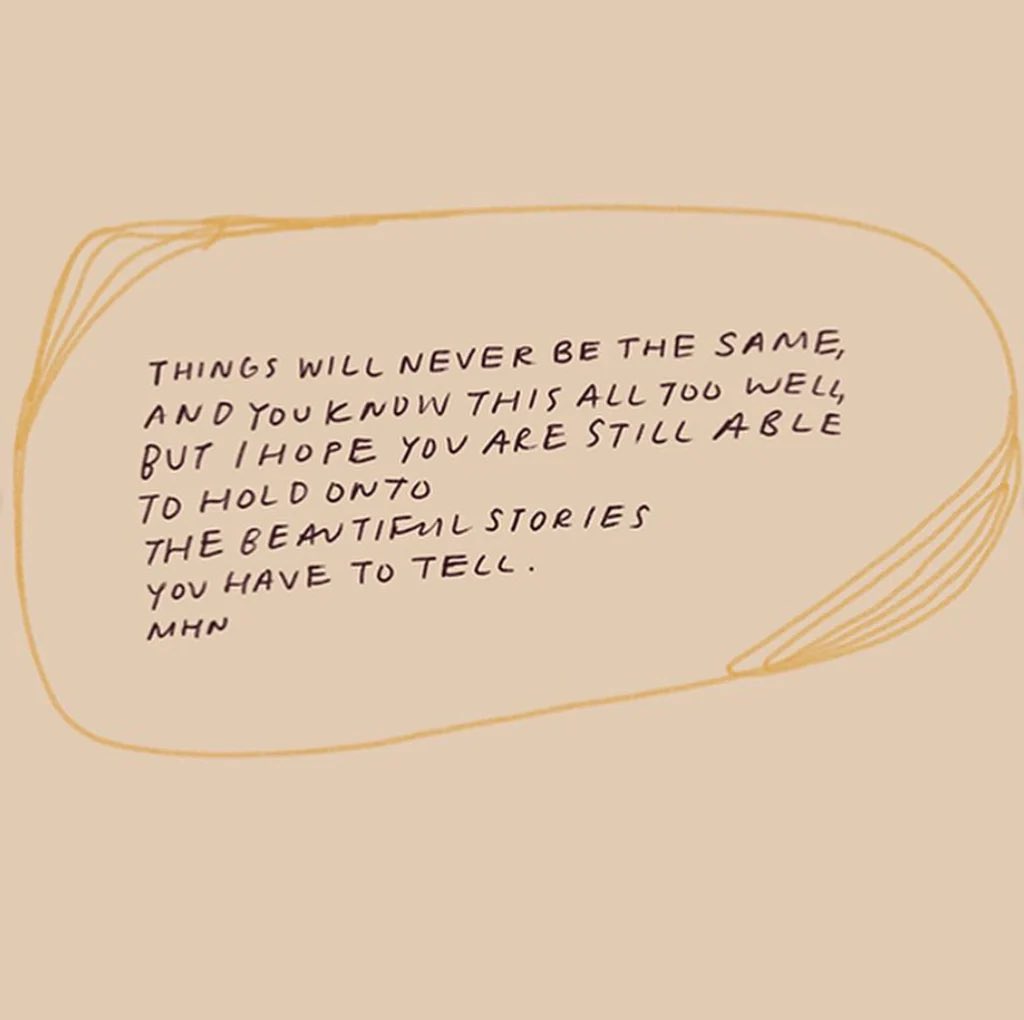 THINGS WILL NEVER BE THE SAME,
AND YOU KNOW THIS ALL TOO WELL,
BUT I HOPE YOU ARE STILL ABLE
TO HOLD ONTO
THE BEAUTIFUL STORIES
YOU HAVE TO TELL.
MHN